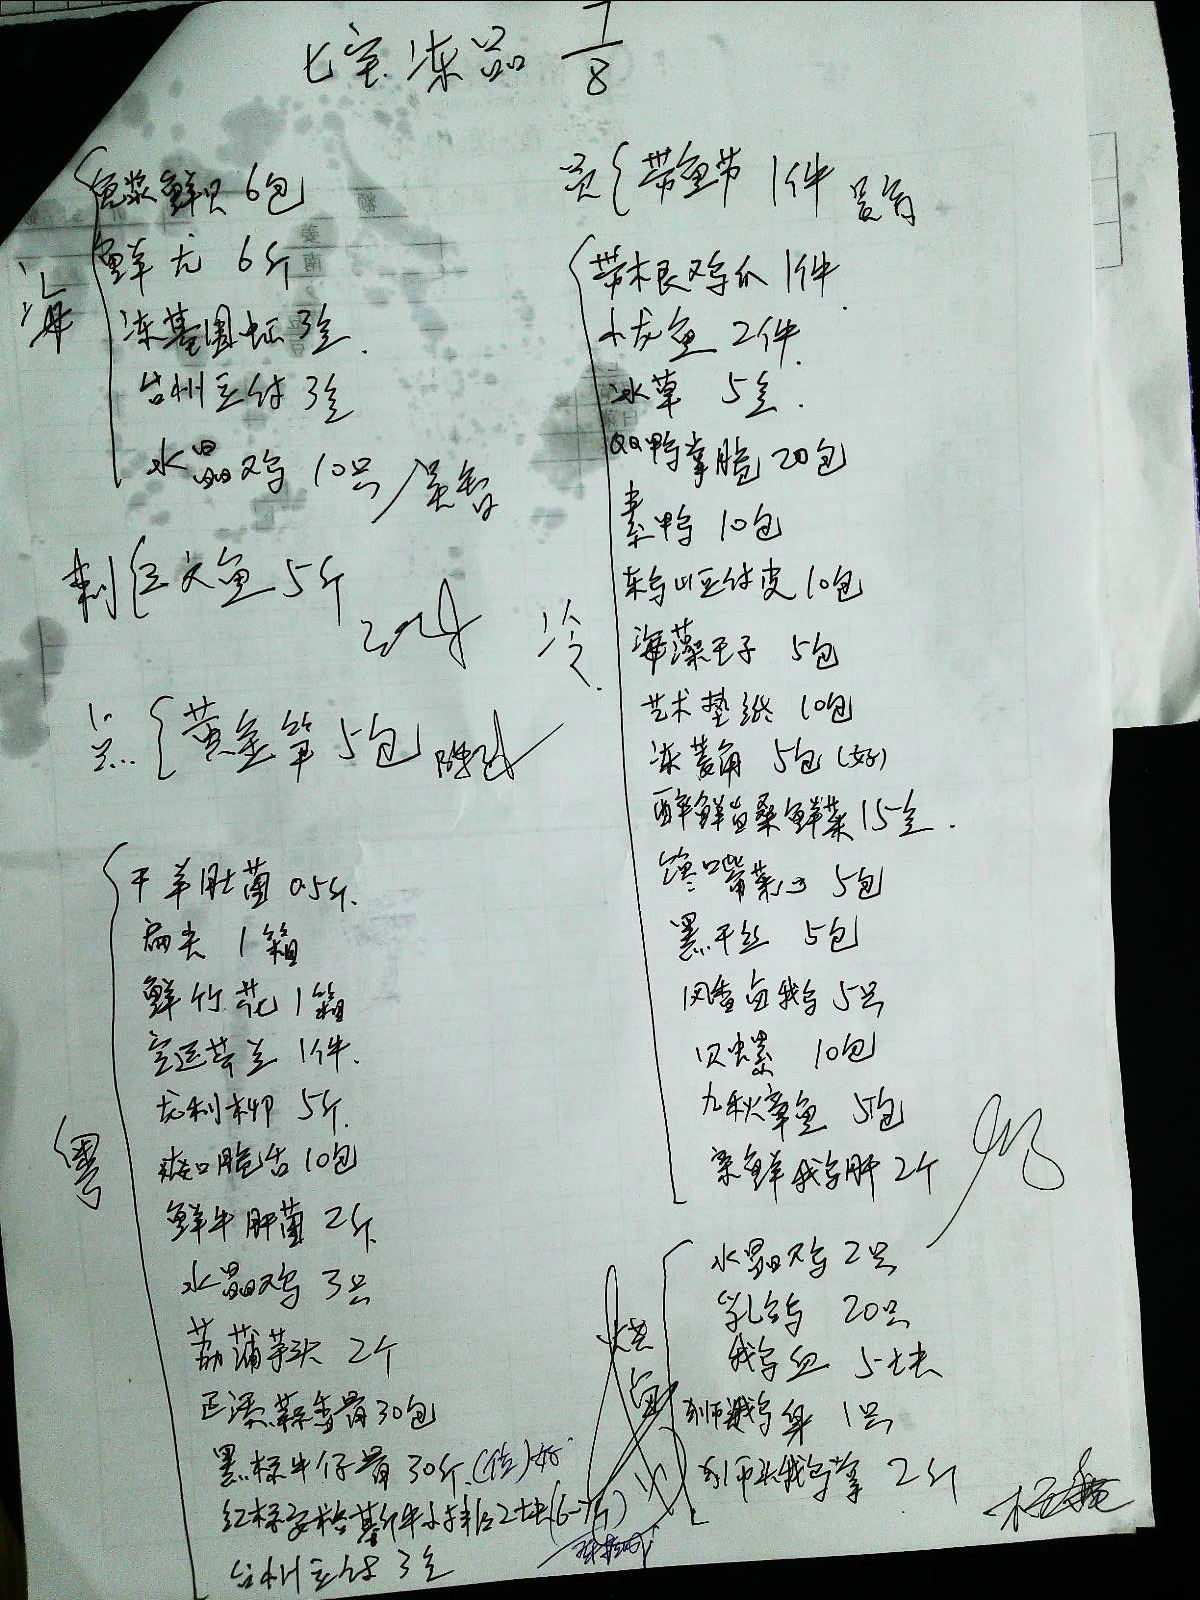 七宝冻品 7/8
海
鱼浆鲜贝 6包
鲜尤 6斤
冻基围虾 3盒
台州豆付 3盒
水晶鸡 10只
刺 三文鱼 5斤
点
黄金笋 5包
粤
干羊肚菌 0.5斤
扁尖 1箱
鲜竹花 1箱
空运芥兰 1件
龙利柳 5斤
爽口脆舌 10包
鲜牛肝菌 2斤
水晶鸡 3只
荔蒲芋头 2个
正澳蒜香骨 30包
黑椒牛仔骨 30斤 (位) 好
红标安格斯牛小排 2块 (6-7斤)
台州豆付 3盒
贡 带鱼带 1件
冷
带木根鸡爪 1件
小龙鱼 2件
冰草 5盒
QQ鸭掌脆 20包
素鸭 10包
东乌山豆付皮 10包
海藻王子 5包
艺术垫纸 10包
冻菱角 5包 (好)
醉鲜
鲜菜 15盒
嘴菜心 5包
黑干丝 5包
风香卤鹅 5只
贝螺 10包
九秋章鱼 5包
鲜鹅肝 2个
烧卤
水晶鸡 2只
乳鸽 20只
鹅血 5块
狮头鹅身 1只
狮头鹅掌 2斤